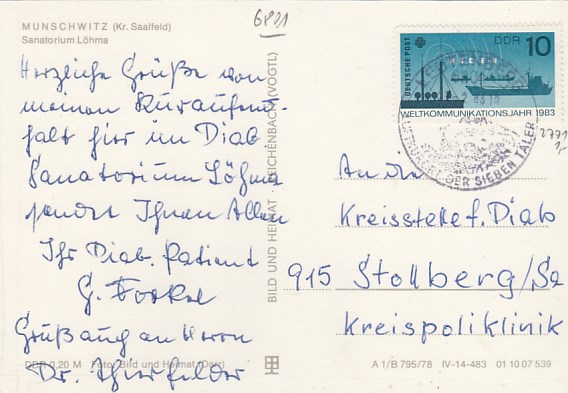 MUNSCHWITZ (Kr. Saalfeld)
Sanatorium Löhma
6821
Herzliche Grüße von
meinem Kuraufent-
halt hier im Diab
Sanatorium Löhma
sendet Ihnen Allen
Ihr Diab. Patient
G.
Gruß auch an Herrn
Dr. Thierfelder
DDR 0,20 M Foto: Bild und Heimat (Darr)
BILD UND HEIMAT · REICHENBACH (VOGTL)
DEUTSCHE POST
DDR 10
WELTKOMMUNIKATIONSJAHR 1983
LUFTKURORT DER SIEBEN TÄLER
2771
1,-
An die
Kreisstelle f. Diab
915 Stollberg/Sa
Kreispoliklinik
A 1/B 795/78 IV-14-483 01 10 07 539